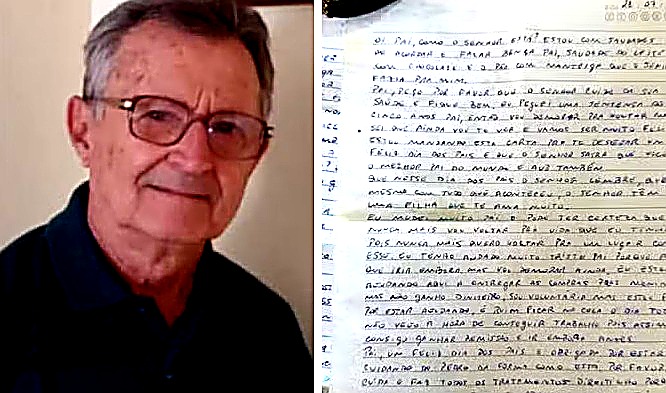 21.07.
OI PAI, COMO O SENHOR ESTÁ? ESTOU COM SAUDADES
DE ACORDAR E FALAR BENÇA PAI, SAUDADE DO LEITE
COM CHOCOLATE E O PÃO COM MANTEIGA QUE O SENH
FAZIA PRA MIM.
PAI, PEÇO POR FAVOR QUE O SENHOR CUIDE DA SUA
SAÚDE E FIQUE BEM, EU PEGUEI UMA SENTENÇA DE
CINCO ANOS PAI, ENTÃO VOU DEMORAR PRA VOLTAR
SEI QUE AINDA VOU TE VER E VAMOS SER MUITO FELI
ESTOU MANDANDO ESTA CARTA PRA TE DESEJAR UM
FELIZ DIA DOS PAIS E QUE O SENHOR SAIBA QUE
O MELHOR PAI DO MUNDO E AVÔ TAMBÉM
QUE NESSE DIA DOS PAIS O SENHOR LEMBRE, QUE
MESMO COM TUDO QUE ACONTECEU, O SENHOR TÊM
UMA FILHA QUE TE AMA MUITO.
EU MUDEI MUITO PAI E PODE TER CERTEZA QUE
NUNCA MAIS VOU VOLTAR PRA VIDA QUE EU TINHA
POIS NUNCA MAIS QUERO VOLTAR PRA UM LUGAR CO
ESSE, EU TENHO ANDADO MUITO TRISTE PAI PORQUE
QUE IRIA EMBORA, MAS VOU DEMORAR AINDA, EU ESTO
AJUDANDO AQUI A ENTREGAR AS COMPRAS PRAS MENIN
MAS NÃO GANHO DINHEIRO, SOU VOLUNTÁRIA MAS ESTOU
POR ESTAR AJUDANDO, É RUIM FICAR NA CELA O DIA TO
NÃO VEJO A HORA DE CONSEGUIR TRABALHO POIS ASSIM
CONSIGO GANHAR REMISSÃO E IR EMBORA ANTES
PAI, UM FELIZ DIA DOS PAIS E OBRIGADA POR ESTAR
CUIDANDO DO PEDRO DA FORMA COMO ESTÁ POR FAVOR
CUIDA E FAZ TODOS OS TRATAMENTOS DIREITINHO